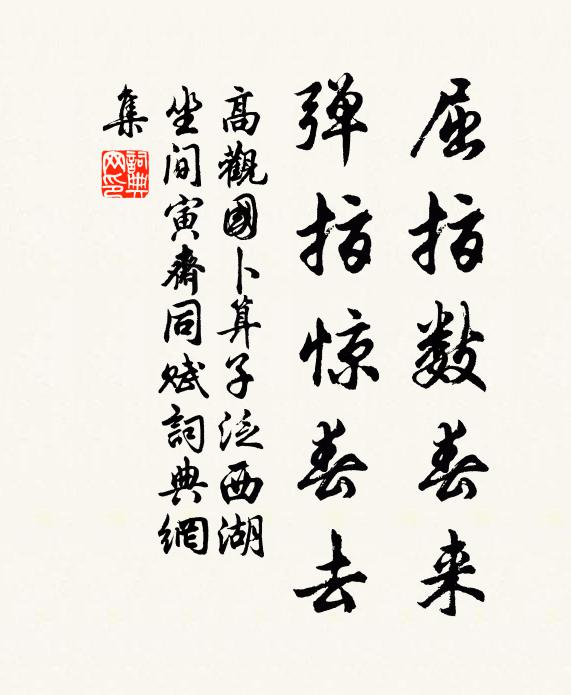 屈指数春来
弹指惊春去
高觀國卜算子泛西湖
坐间寅齋同赋詞典網
集
詞典网印